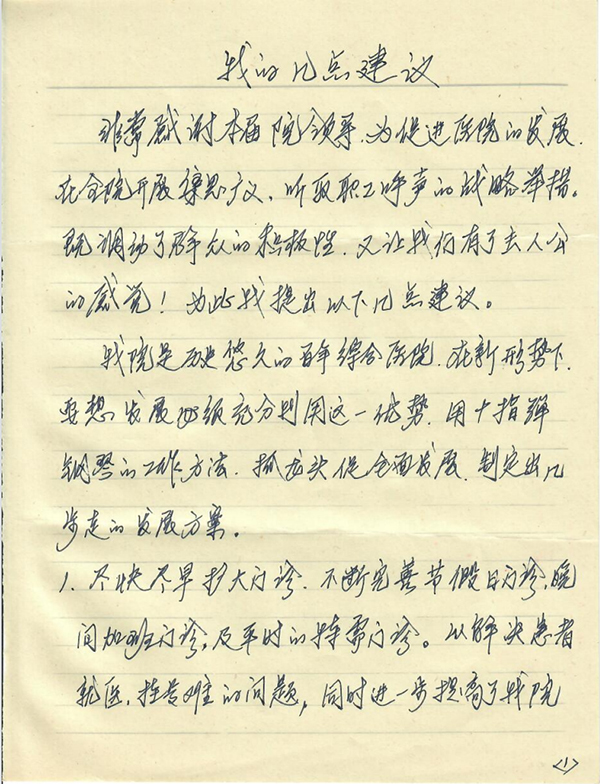 我的几点建议
非常感谢本届院领导,为促进医院的发展.
在全院开展集思广义、听取职工呼声的战略举措。
既调动了群众的积极性.又让我们有了主人公
的感觉!为此我提出以下几点建议。
我院是历史悠久的百年综合医院.在新形势下.
要想发展必须充分利用这一优势.用十指弹
钢琴的工作方法.抓龙头促全面发展.制定出几
步走的发展方案。
1.尽快尽早扩大门诊.不断完善节假日门诊,晚
间加班门诊,及平时的特需门诊。以解决患者
就医,挂号难的问题,同时进一步提高了我院
<1>